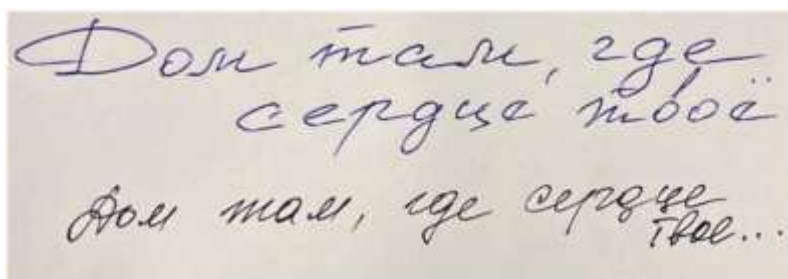 Дом там, где
сердце твоё
Дом там, где сердце
твое...